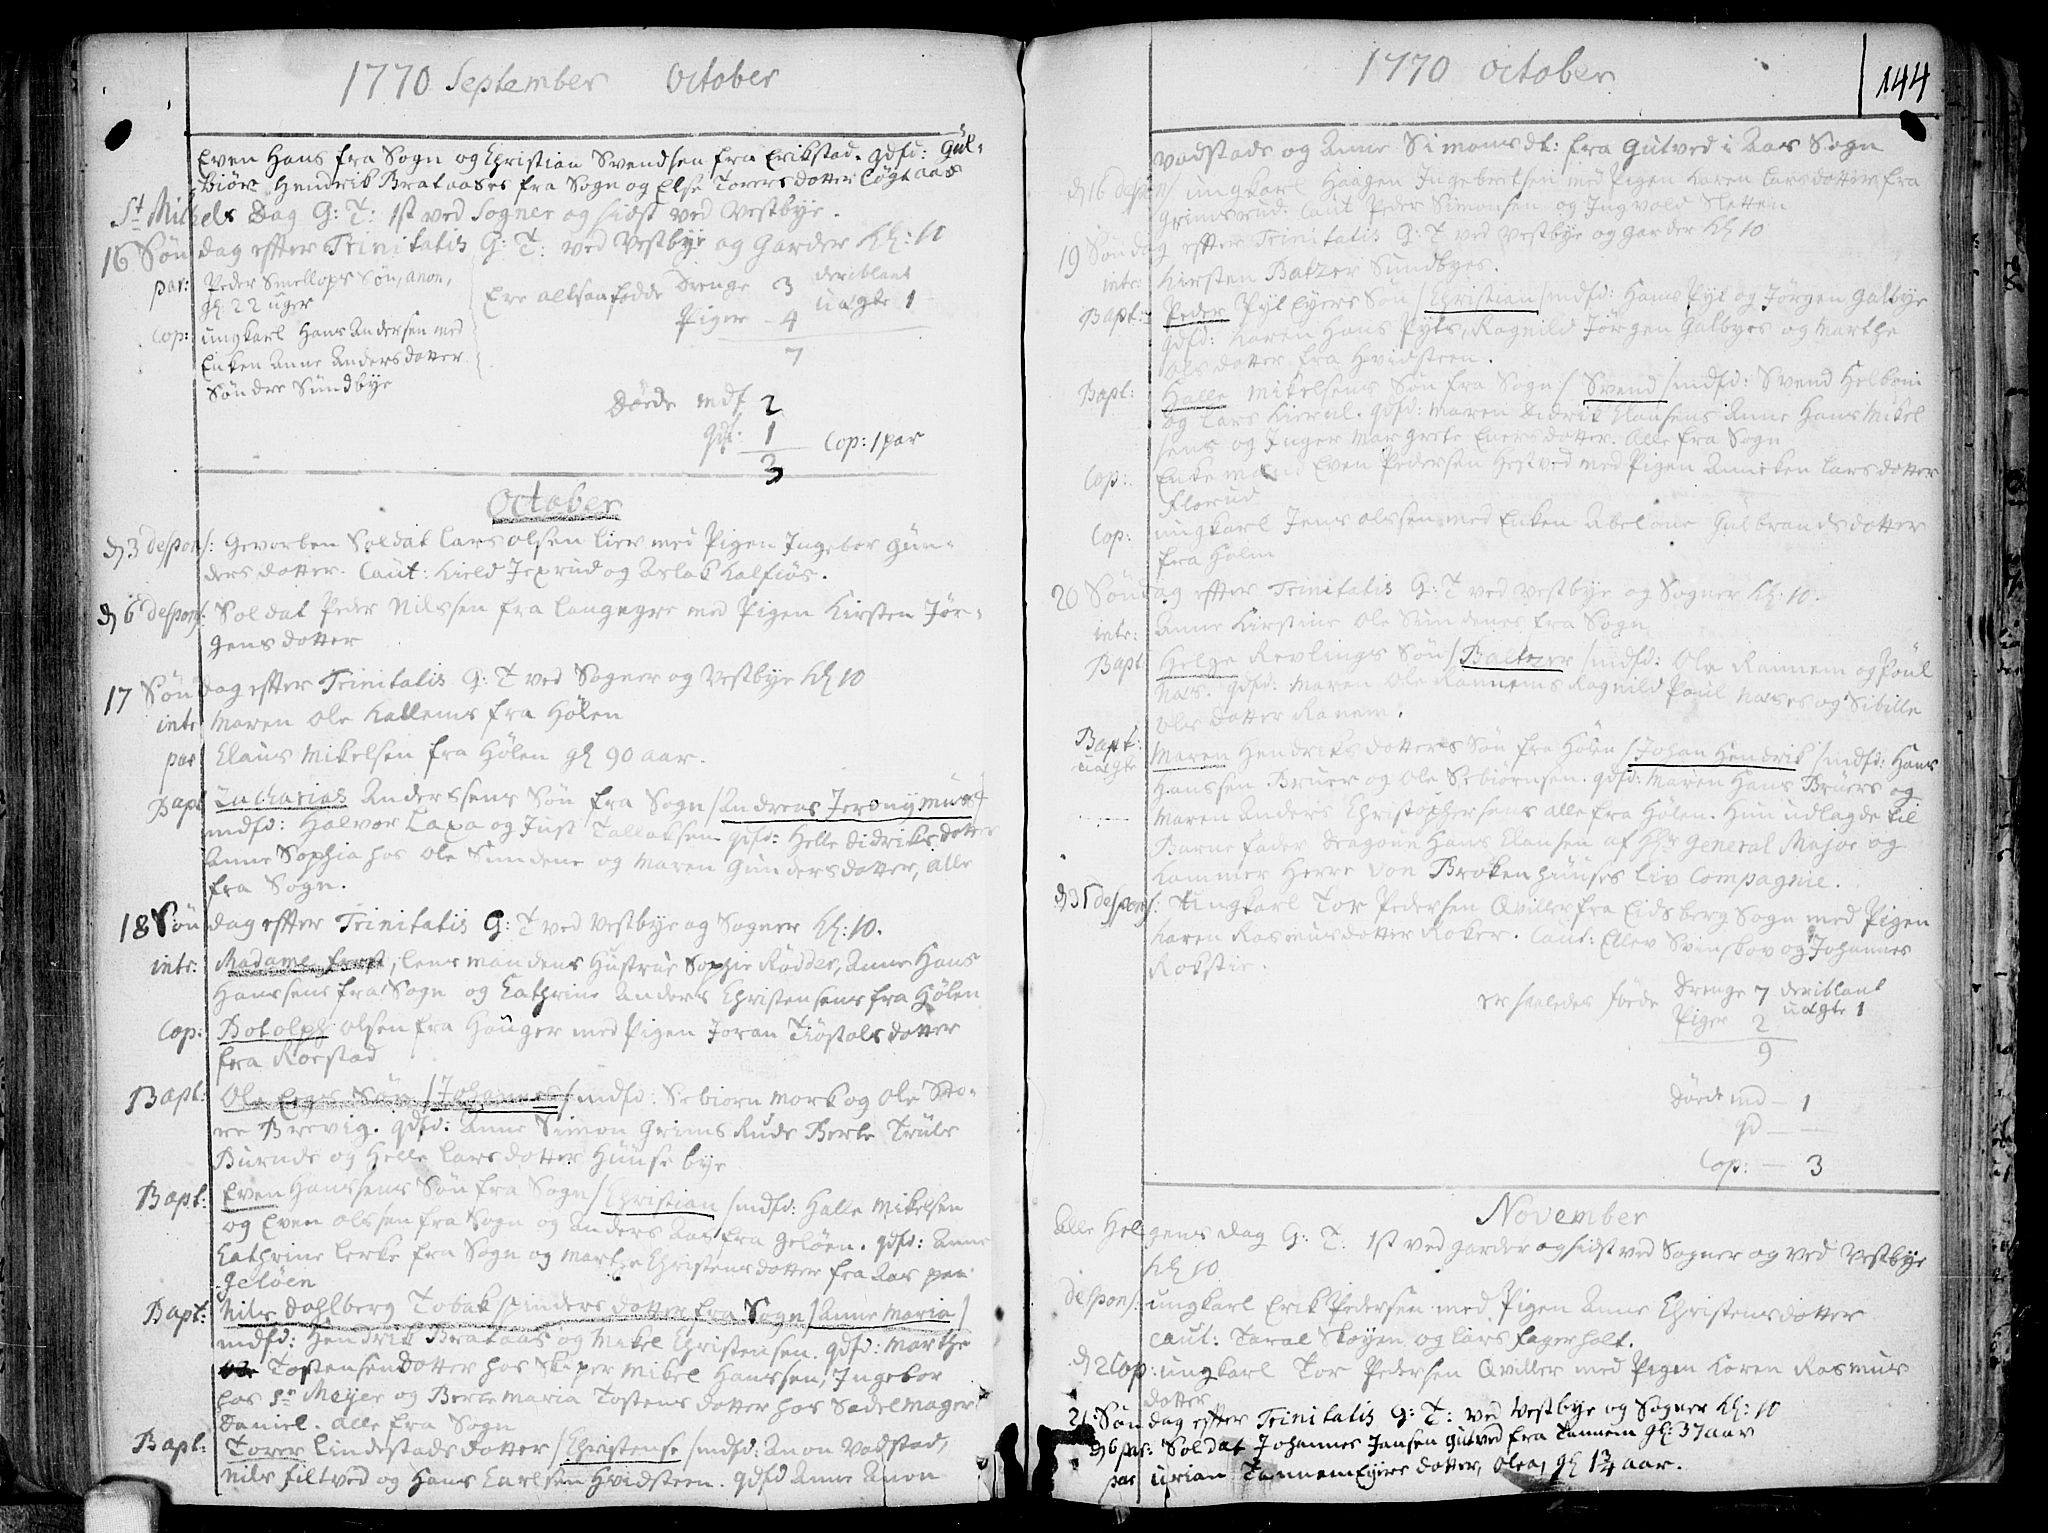 1770 September October
Even Hans fra Sogn og Christian Svendsen fra Erikstad. qdfd: Gul-
biør Hendrik Brataases fra Sogn og Else Torersdotter Løgtaas
St Mikels Dag G: T: 1st ved Sogner og sidst ved Vestbye.
16 Søndag efter Trinitatis G: T: ved Vestbye og Garder Kl: 10
par: Peder Smellops Søn, anon,
gl 22 uger
Ere altsaa fødde Drenge 3 deriblant
Piger - 4 uægte 1
7
Cop: ungkarl Hans Andersen med
Enken Anne Andersdotter
Søndre Sundbye
Døde mdf 2
qdf: 1 Cop: 1 par
3
October
d 3 despons: Gevorben Soldat Lars Olsen Liev med Pigen Ingebor Gun-
dersdotter. Caut: Kield Jexrud og Aslak Kalfiøs.
d 6 despons: Soldat Peder Nilssen fra Langegre med Pigen Kirsten Jør-
gensdotter
17 Søndag efter Trinitatis G: T ved Sogner og Vestbye Kl 10
intr Maren Ole Kallems fra Hølen
par Claus Mikelsen fra Hølen gl 90 aar.
Bapt Zacharias Anderssens Søn fra Sogn / Andreas Jeronymus /
mdfd: Halvor Laxa og Just Tallaksen qdfd: Helle Didriksdotter
Anne Sophia hos Ole Sundene og Maren Gundersdotter, alle
fra Sogn.
18 Søndag efter Trinitatis G: T ved Vestbye og Sogner Kl: 10.
intr: Madame Frost, Lensmandens Hustrue Sophie Rødder, Anne Hans
Hanssens fra Sogn og Cathrine Anders Christensens fra Hølen
Cop: Botolph Olsen fra Hauger med Pigen Joran Tiøstolsdotter
fra Rørstad
Bapt: Ole Eyers Søn / Johannes / mdfd: Sebiørn Mork og Ole Sto-
re Brevig. qdfd: Anne Simon Grimsruds Berte Truls
Burnds og Helle Larsdotter Huusebye
Bapt: Even Hanssens Søn fra Sogn / Christian / mdfd: Halle Mikelsen
og Even Olssen fra Sogn og Anders Aas fra Geløen. qdfd: Anne
Cathrine Lerke fra Sogn og Marthe Christensdotter fra Aas paa
Geløen
Bapt: Nils Dahlberg Tobakspinders dotter fra Sogn / Anne Maria /
mdfd: Hendrik Brataas og Mikel Christensen. qdfd: Marthe
Tostensendotter hos Skiper Mikel Hanssen, Ingebor
hos Sr Meyer og Berte Maria Tostensdotter hos Sadelmager
Daniel. alle fra Sogn
Bapt: Torer Lindestads dotter / Christense / mdfd: Anon Vadstad,
Nils Filtved og Hans Carlsen Hvidsteen. qdfd Anne Anon
1770 October 144
Vadstads og Anne Simonsdt: fra Gutved i Aas Sogn
d 16 despons ungkarl Haagen Ingebretsen med Pigen Karen Larsdotter fra
Grimsrud. Caut Peder Simonsen og Ingvold Sletten
19 Søndag efter Trinitatis G: T ved Vestbye og Garder Kl 10
intr: Kirsten Batzer Sundbyes.
Bapt: Peder Pyt Eyers Søn / Christian / mdfd: Hans Pyt og Jørgen Galbye
qdfd: Karen Hans Pyts, Ragnild Jørgen Galbyes og Marthe
Olsdotter fra Hvidsteen.
Bapt: Halle Mikelsens Søn fra Sogn / Svend / mdfd: Svend Helboni
og Lars Kierul. qdfd: Maren Didrik Clausens Anne Hans Mikel
sens og Inger Margrete Eversdotter. Alle fra Sogn
Cop: Enkemand Even Pedersen Hestved med Pigen Anneken Larsdotter
Florud
Cop: ungkarl Jens Olssen med Enken Abelone Gulbrandsdotter
fra Holm
20 Søndag efter Trinitatis G: T ved Vestbye og Sogner Kl: 10.
intr: Anne Kirstine Ole Sundenes fra Sogn
Bapt Helge Revlings Søn / Baltzer / mdfd: Ole Rannem og Poul
Nas. qdfd: Maren Ole Rannems Ragnild Paul Nases og Sibille
Olsdotter Ranem.
Bapt: uægte Maren Hendriksdotters Søn fra Hølen / Johan Hendrik / mdfd: Hans
Hanssen Bruer og Ole Sebiørnsen. qdfd: Maren Hans Bruers og
Maren Anders Christophersens alle fra Hølen. Hun udlagde til
Barnefader Dragoun Hans Clausen af Hr General Major og
Kammer Herre von Brokenhuuses Liv Compagnie.
d 31 despons: Ungkarl Tor Pedersen Qviller fra Eidsberg Sogn med Pigen
Karen Rasmusdotter Roker. Caut: Ellev Svinskov og Johannes
Rokstie.
er saaledes fødde Drenge 7 deriblant
Piger 2 uægte 1
9
Døde md - 1
qd - -
Cop: - 3
November
Alle Helgens Dag G: T: 1st ved Garder og sidst ved Sogner og ved Vestbye
Kl 10
despons: ungkarl Erik Pedersen med Pigen Anne Christensdotter
Caut: Taral Skøyen og Lars Fagerholt.
d 2 Cop: ungkarl Tor Pedersen Qviller med Pigen Karen Rasmus
dotter
21 Søndag efter Trinitatis G: T: ved Vestbye og Sogner Kl: 10
d 6 par: Soldat Johannes Jansen Gutved fra Tannem gl: 37 aar
par Urian Tannem Eyers dotter, Olea, gl 1 3/4 aar.